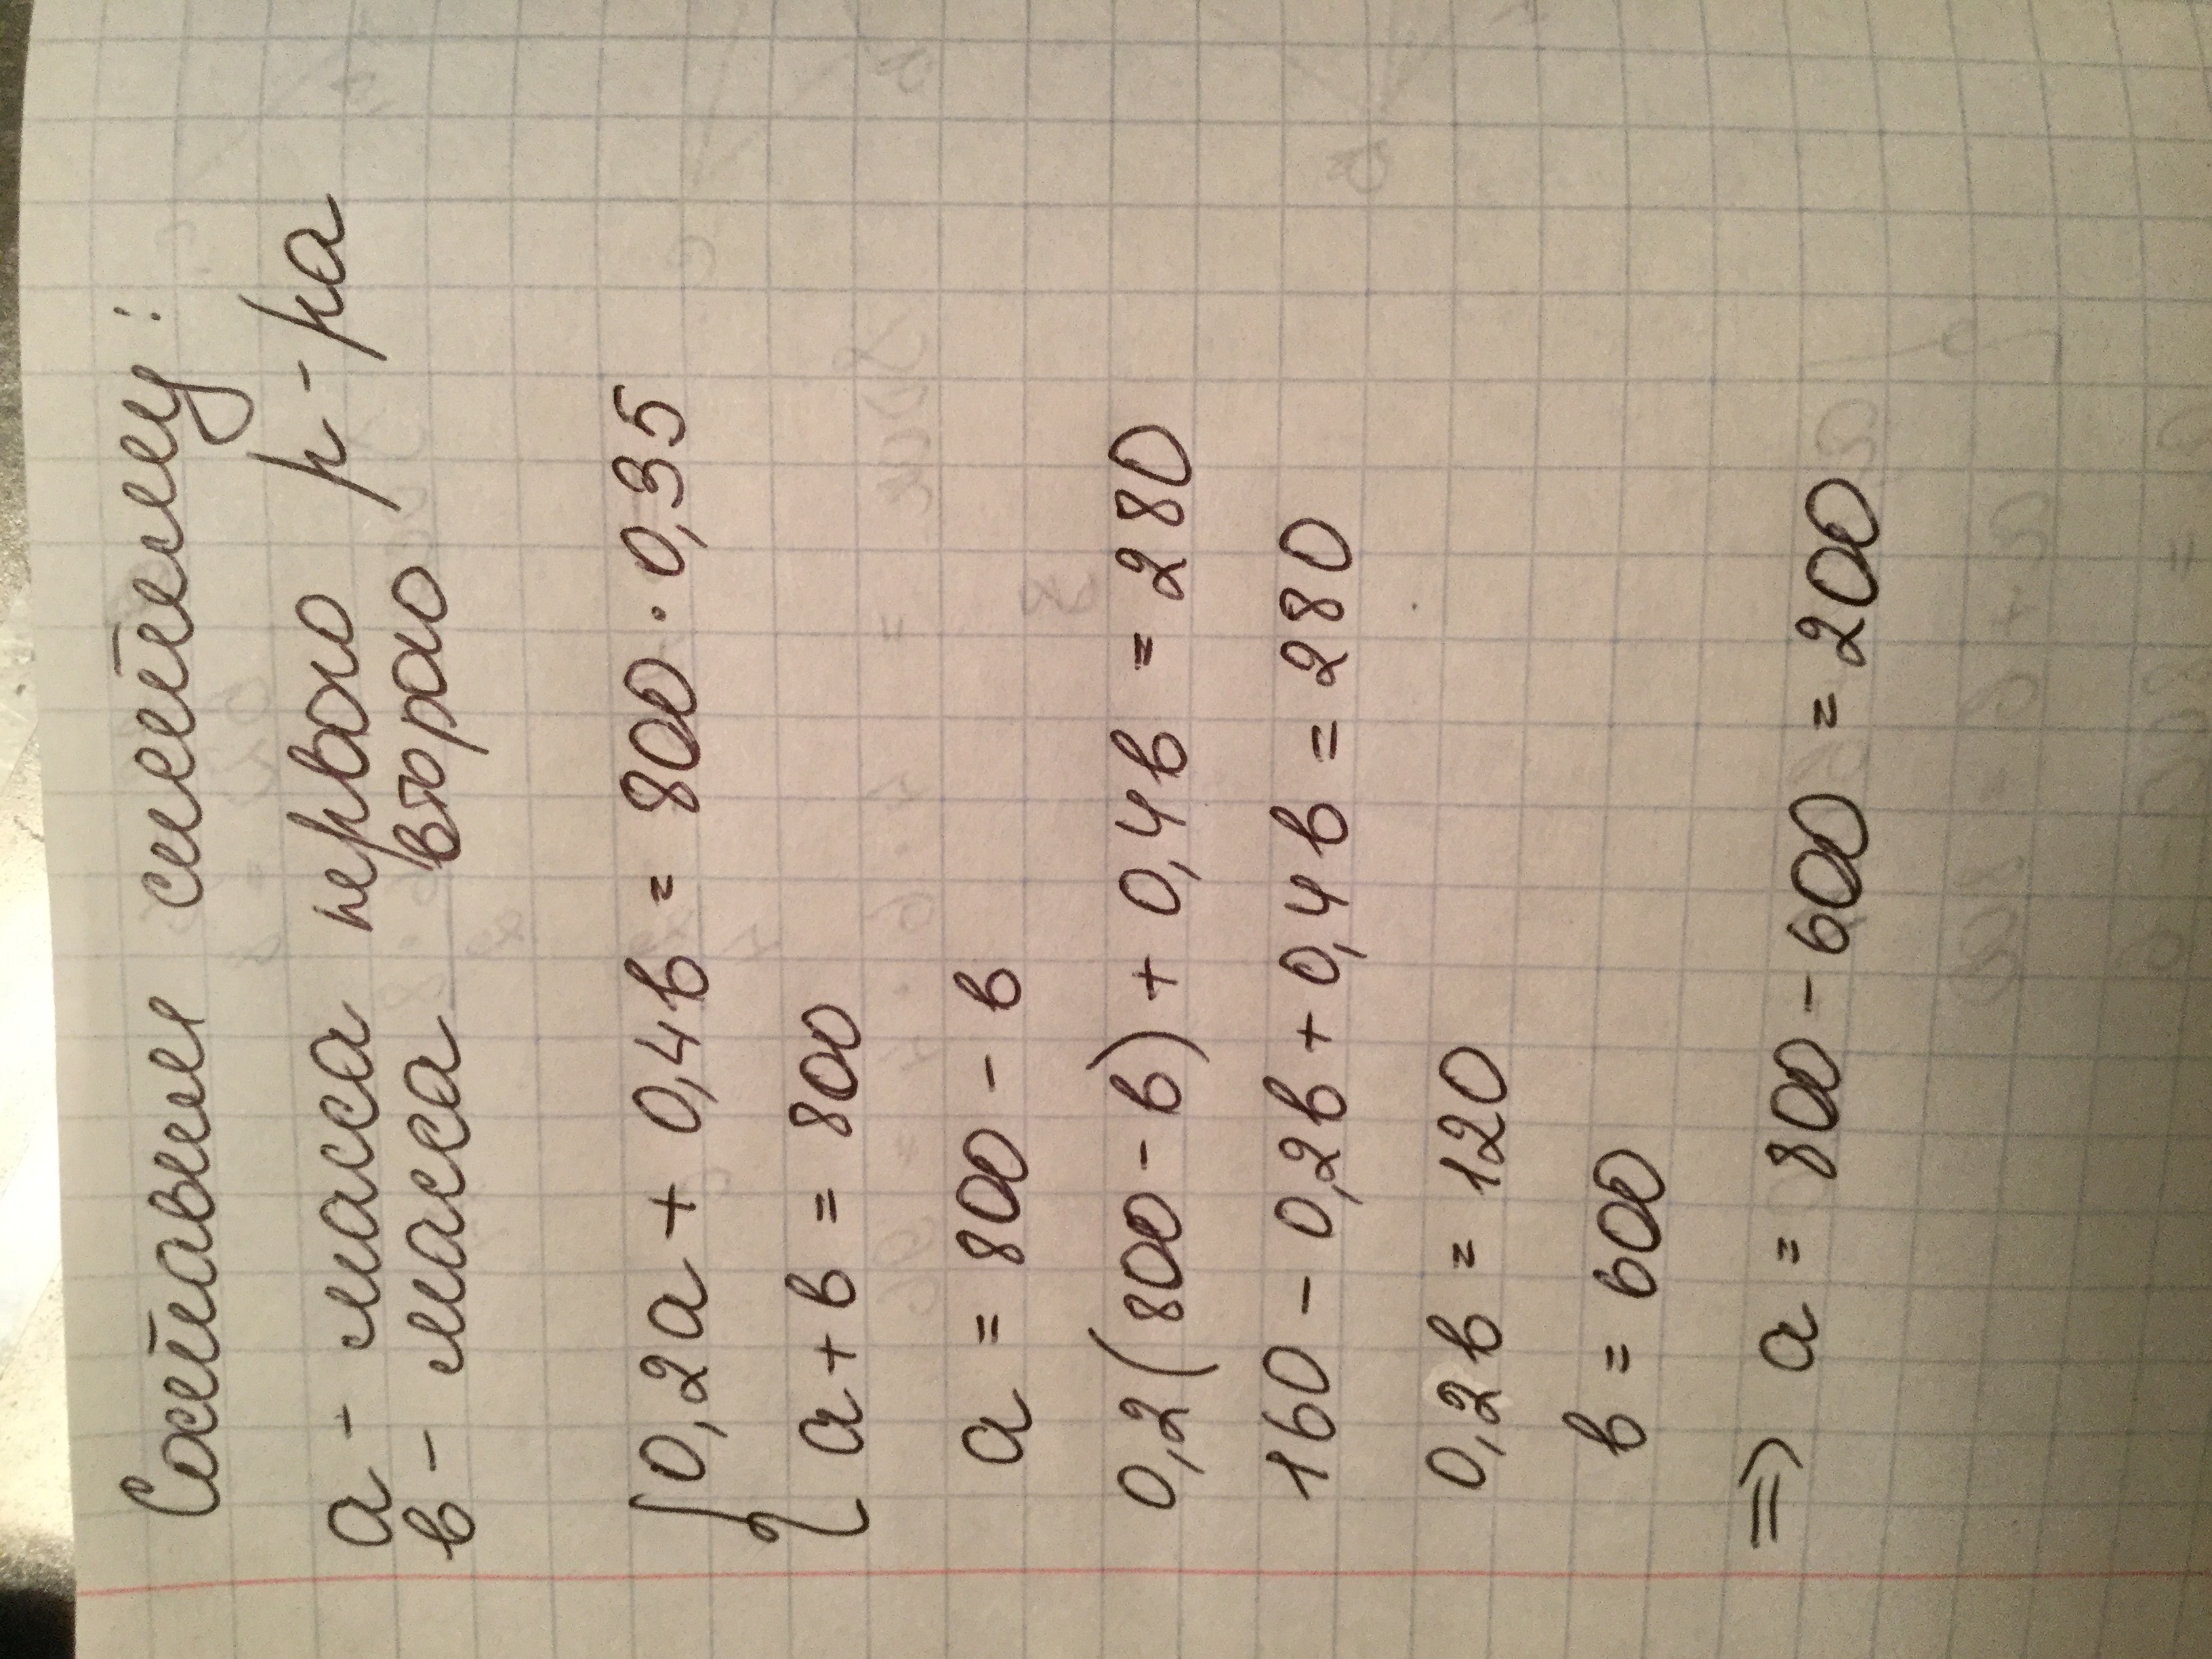 Составим систему:
а - масса первого р-ра
в - масса второго
0,2а + 0,4в = 800 · 0,35
а + в = 800
а = 800 - в
0,2(800 - в) + 0,4в = 280
160 - 0,2в + 0,4в = 280
0,2в = 120
в = 600
⇒ а = 800 - 600 = 200